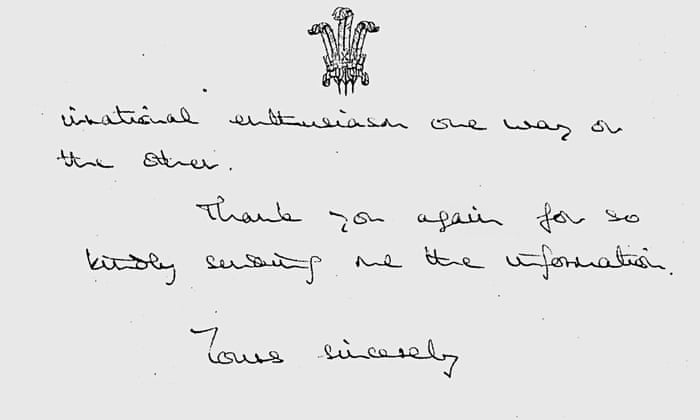 irrational enthusiasm one way or
the other.
Thank you again for so
kindly sending me the information.
Yours sincerely